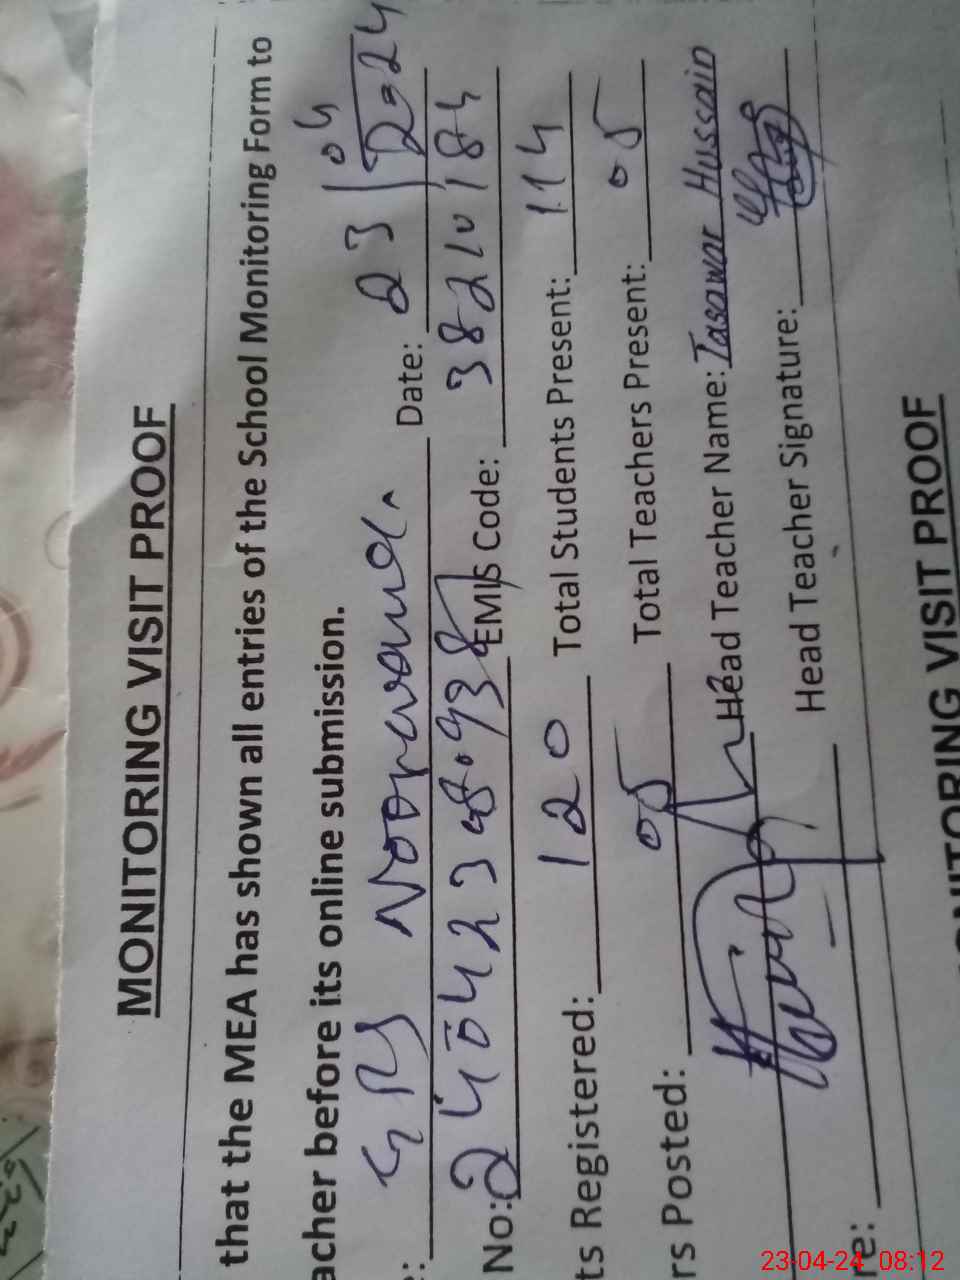 MONITORING VISIT PROOF
that the MEA has shown all entries of the School Monitoring Form to
acher before its online submission.
: GPS Date: 23/04/2024
No: EMIS Code: 38210184
ts Registered: 120 Total Students Present: 114
rs Posted: 05 Total Teachers Present: 05
Head Teacher Name: Tasawar Hussain
re: Head Teacher Signature:
MONITORING VISIT PROOF
23-04-24 08:12